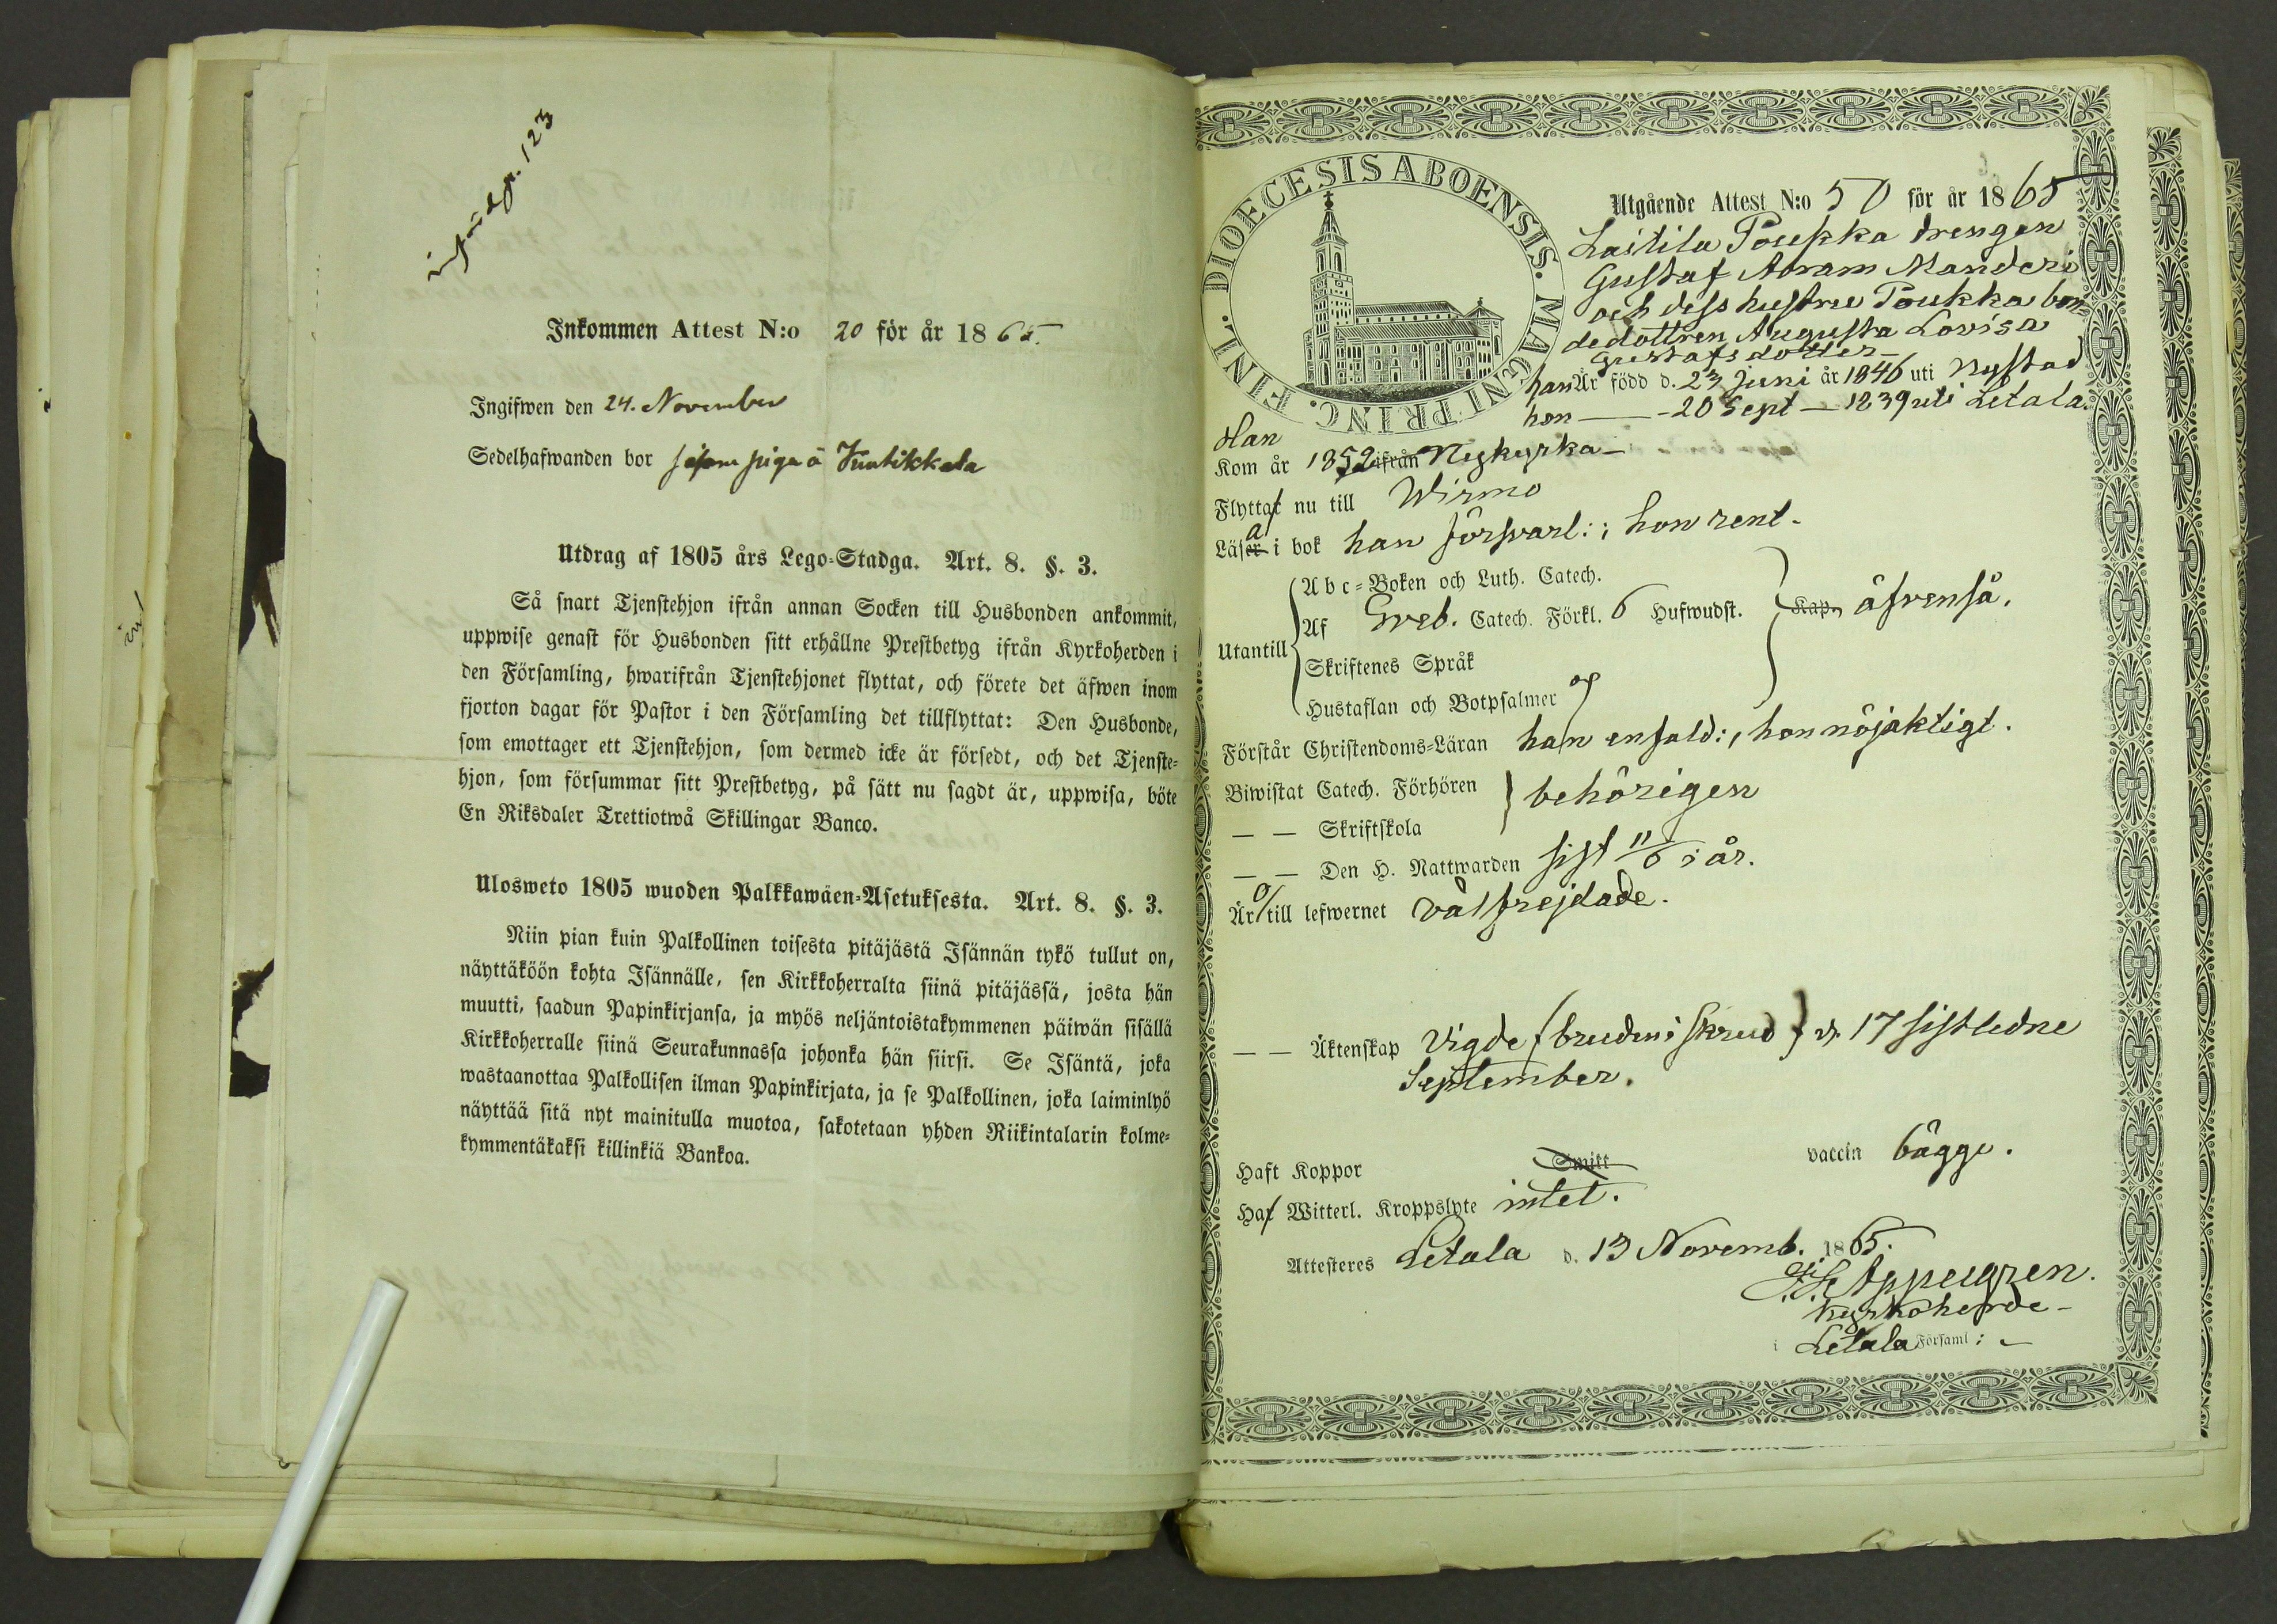 införd p. 123
Inkommen Attest N:o 20 för år 1865.
Ingifwen den 24. November
Sedelhafwanden bor såsom piga å Kuutikkala
Utdrag af 1805 års Lego-Stadga. Art. 8. §. 3.
Så snart Tjenstehjon ifrån annan Socken till Husbonden ankommit,
uppwise genast för Husbonden sitt erhållne Prestbetyg ifrån Kyrkoherden i
den Församling, hwarifrån Tjenstehjonet flyttat, och förete det äfwen inom
fjorton dagar för Pastor i den Församling det tillflyttat: Den Husbonde,
som emottager ett Tjenstehjon, som dermed icke är försedt, och det Tjenste-
hjon, som försummar sitt Prestbetyg, på sätt nu sagdt är, uppwisa, böte
En Riksdaler Trettiotwå Skillingar Banco.
Ulosweto 1805 wuoden Palkkawäen-Asetuksesta. Art. 8. §. 3.
Niin pian kuin Palkollinen toisesta pitäjästä Isännän tykö tullut on,
näyttäköön kohta Isännälle, sen Kirkkoherralta siinä pitäjässä, josta hän
muutti, saadun Papinkirjansa, ja myös neljäntoistakymmenen päiwän sisällä
Kirkkoherralle siinä Seurakunnassa johonka hän siirsi. Se Isäntä, joka
wastaanottaa Palkollisen ilman Papinkirjata, ja se Palkollinen, joka laiminlyö
näyttää sitä nyt mainitulla muotoa, sakotetaan yhden Riikintalarin kolme-
kymmentäkaksi killinkiä Bankoa.
DIOECESIS ABOENSIS. MAGNI PRINC. FINL.
Utgående Attest N:o 50 för år 1865
Laitila Poukka drengen
Gustaf Abram Mander
och dess hustru Poukka bon-
dedottren Augusta Lovisa
Gustafsdotter
han Är född d. 23 Juni år 1846 uti Nystad
hon — 20 Sept — 1839 uti Letala.
Han
Kom år 1852 ifrån Nykyrka
Flyttat nu till Wirmo
Läsa i bok han försvarl:; hon rent.
Utantill
Abc-Boken och Luth. Catech.
Af Sveb. Catech. Förkl. 6 Hufwudst. Kap. äfvenså.
Skriftenes Språk
Hustaflan och Botpsalmer
Förstår Christendoms-Läran han enfald:, hon nöjaktigt.
Biwistat Catech. Förhören behörigen
— — Skriftskola
— — Den H. Nattwarden sist 11/6 i år.
Äro till lefwernet välfrejdade.
— — Äktenskap vigde (bruden i skrud) d. 17 sistledne
September.
Haft Koppor Smitt vaccin bägge.
Haf Witterl. Kroppslyte intet.
Attesteres Letala d. 13 Novemb. 1865.
Appelgren.
Kyrkoherde
i Letala Församl: